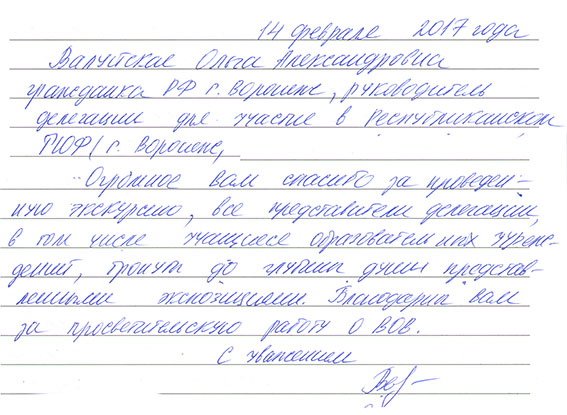 14 февраля 2017 года
Валуйская Ольга Александровна
гражданка РФ г. Воронеж, руководитель
делегации для участие в Республиканском
г. Воронеж,
Огромное вам спасибо за проведен-
ную экскурсию, все представители делегации,
в том числе учащиеся образовательных учреж-
дений, тронуты до глубины души представ-
ленными экспозициями. Благодарим вам
за просветительскую работу о ВОВ.
С уважением